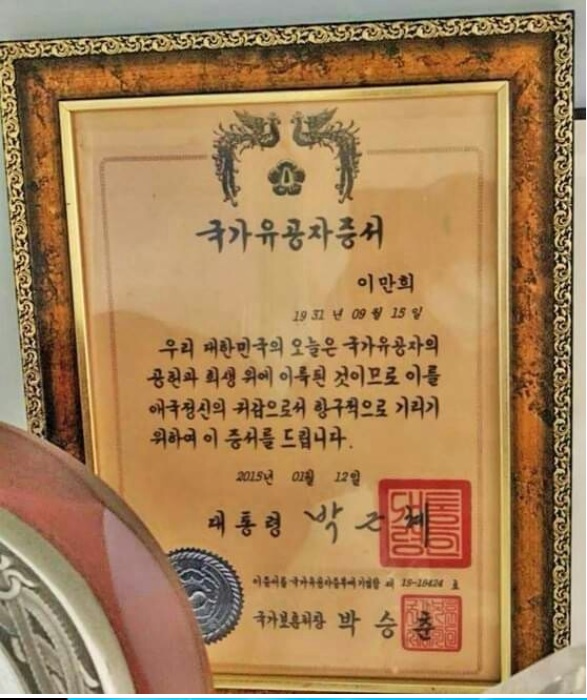 국가유공자증서
이만희
1931년 09월 15일
우리 대한민국의 오늘은 국가유공자의
공헌과 희생 위에 이룩된 것이므로 이를
애국정신의 귀감으로서 항구적으로 기리기
위하여 이 증서를 드립니다.
2015년 01월 12일
대통령 박근혜
이증서를 국가유공자증부에 기입함 제 15-18424 호
국가보훈처장 박승춘